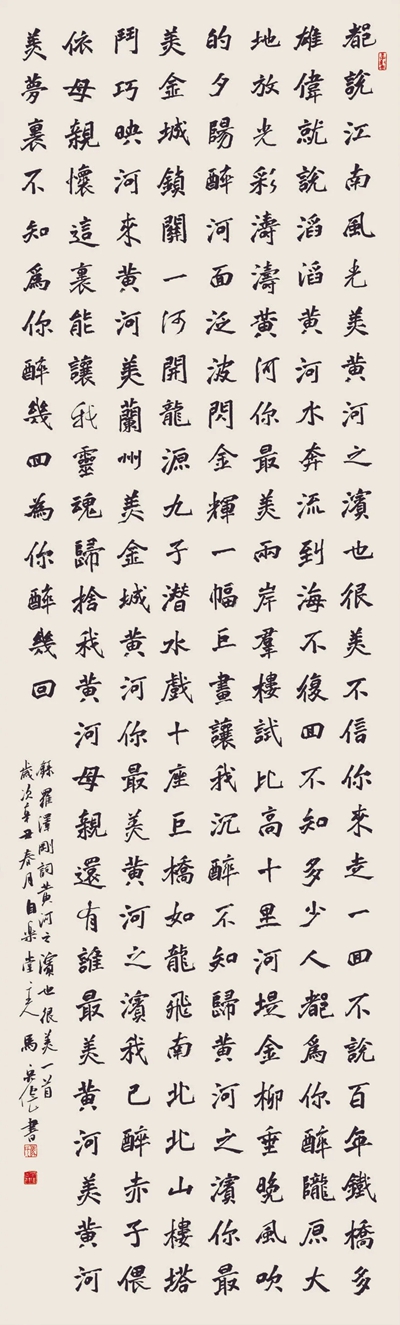 都說江南風光美黃河之濱也很美不信你來走一回不說百年鐵橋多
雄偉就說滔滔黃河水奔流到海不復回不知多少人都爲你醉隴原大
地放光彩濤濤黃河你最美兩岸羣樓試比高十里河堤金柳垂晚風吹
的夕陽醉河面泛波閃金輝一幅巨畫讓我沉醉不知歸黃河之濱你最
美金城鎖關一河開龍源九子潛水戲十座巨橋如龍飛南北北山樓塔
鬥巧映河來黃河美蘭州美金城黃河你最美黃河之濱我已醉赤子偎
依母親懷這裏能讓我靈魂歸捨我黃河母親還有誰最美黃河美黃河
美夢裏不知爲你醉幾回為你醉幾回
錄羅澤剛詞黃河之濱也很美一首
歲次辛丑春月自樂堂主人馬書